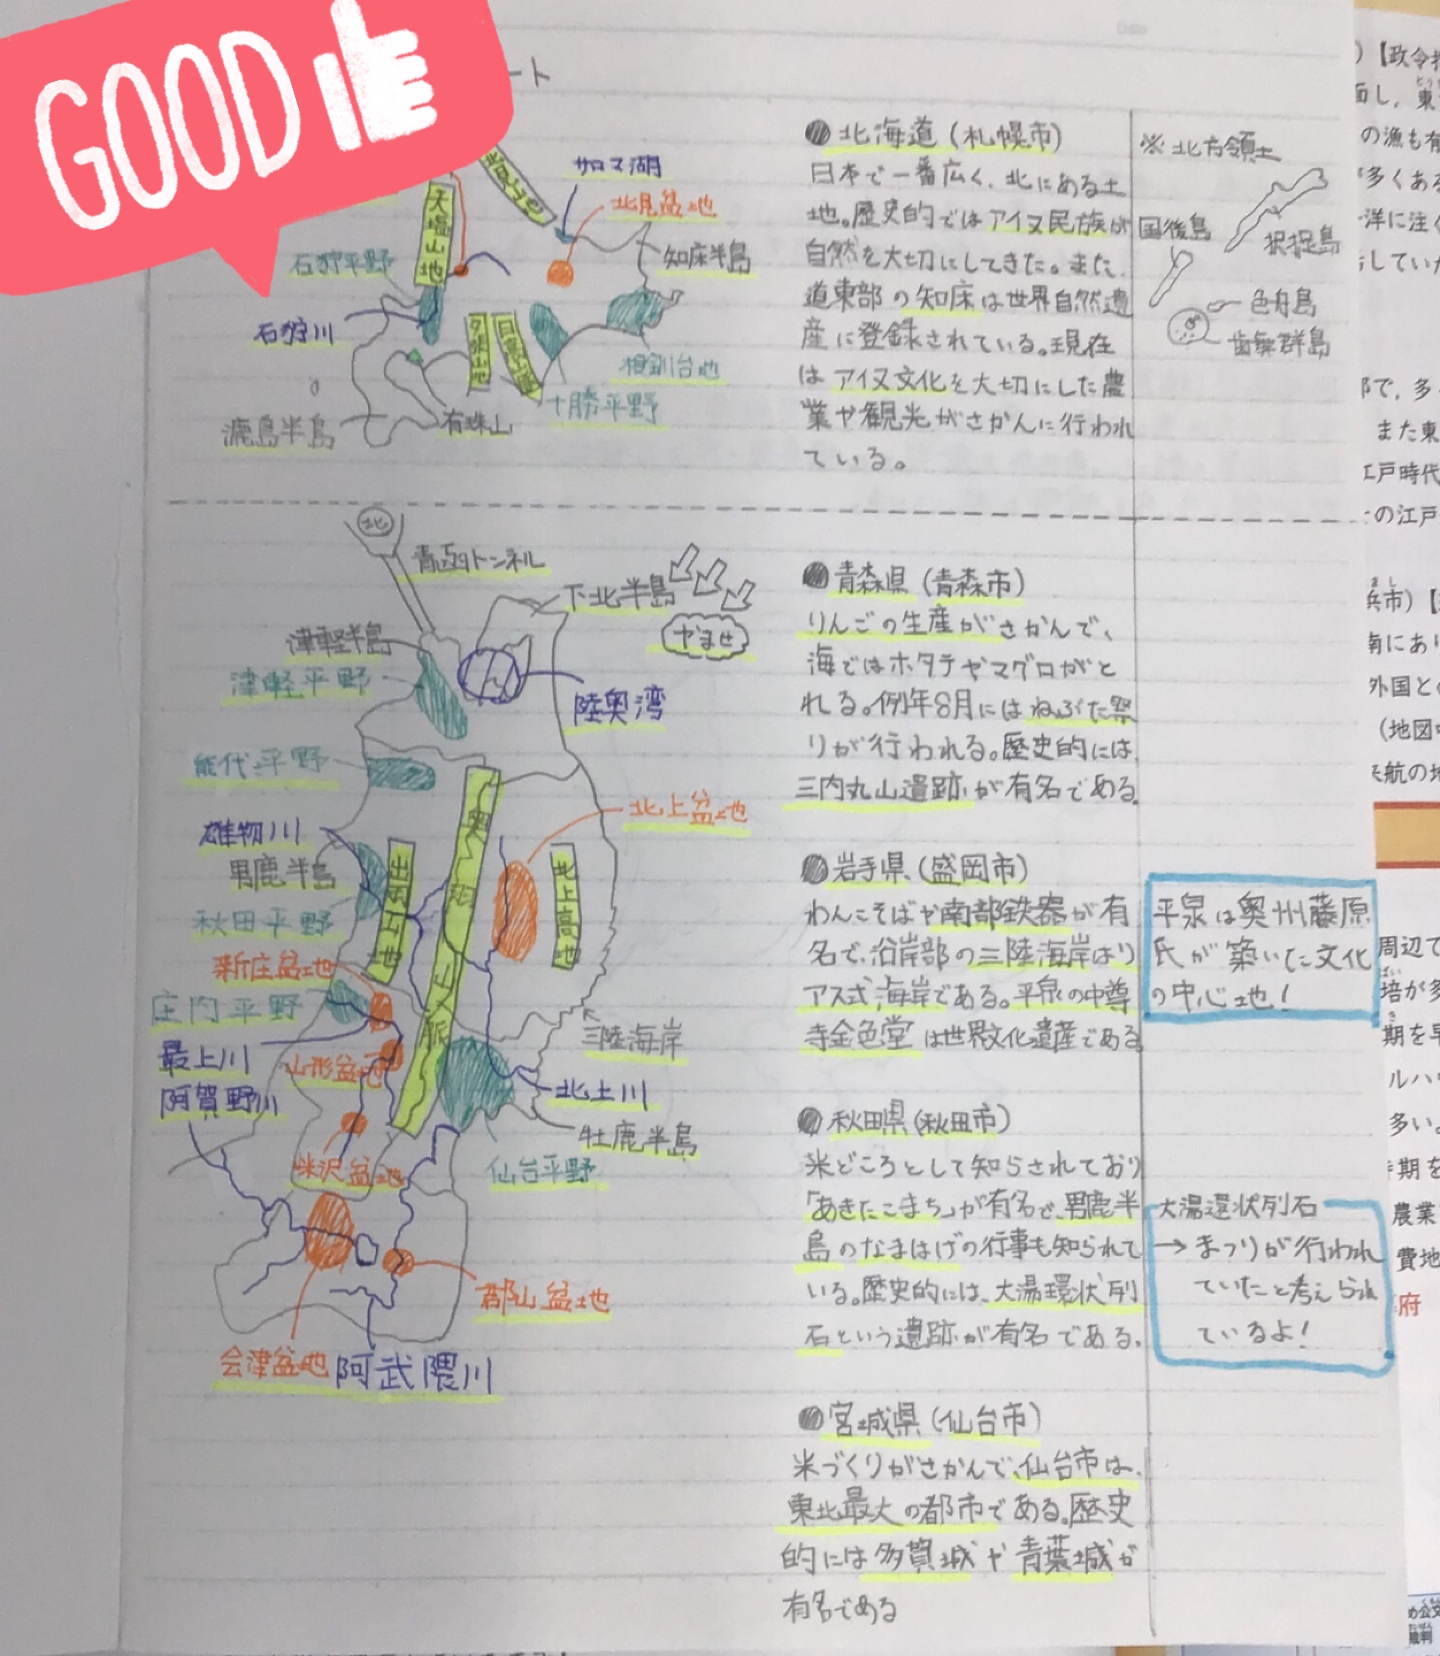 GOOD
ート
天塩山地
サロマ湖
北見盆地
知床半島
石狩平野
石狩川
夕張山地
日高山脈
根釧台地
十勝平野
有珠山
渡島半島
●北海道(札幌市)
日本で一番広く、北にある土
地。歴史的ではアイヌ民族が
自然を大切にしてきた。また、
道東部の知床は世界自然遺
産に登録されている。現在
はアイヌ文化を大切にした農
業や観光がさかんに行われ
ている。
※北方領土
国後島
択捉島
色丹島
歯舞群島
北
青函トンネル
下北半島
やませ
津軽半島
津軽平野
陸奥湾
能代平野
北上盆地
雄物川
男鹿半島
秋田平野
出羽山地
奥羽山脈
北上高地
新庄盆地
庄内平野
最上川
山形盆地
阿賀野川
三陸海岸
北上川
牡鹿半島
仙台平野
米沢盆地
郡山盆地
会津盆地
阿武隈川
●青森県(青森市)
りんごの生産がさかんで、
海ではホタテやマグロがと
れる。例年8月にはねぶた祭
りが行われる。歴史的には、
三内丸山遺跡が有名である。
●岩手県(盛岡市)
わんこそばや南部鉄器が有
名で、沿岸部の三陸海岸はリ
アス式海岸である。平泉の中尊
寺金色堂は世界文化遺産である。
平泉は奥州藤原
氏が築いた文化
の中心地!
●秋田県(秋田市)
米どころとして知らされており
「あきたこまち」が有名で、男鹿半
島のなまはげの行事も知られて
いる。歴史的には、大湯環状列
石という遺跡が有名である。
大湯環状列石
→まつりが行われ
ていたと考えられ
ているよ!
●宮城県(仙台市)
米づくりがさかんで、仙台市は、
東北最大の都市である。歴史
的には多賀城や青葉城が
有名である
【政令指
面し，東
の漁も有
多くある
洋に注ぐ
していた
部で，多
また東
江戸時代
の江戸
浜市)【
南にあり
外国と
(地図中
来航の地
周辺で
培が多
期を早
ルハウ
多い。
時期を
農業
費地
府
め公文
裁判